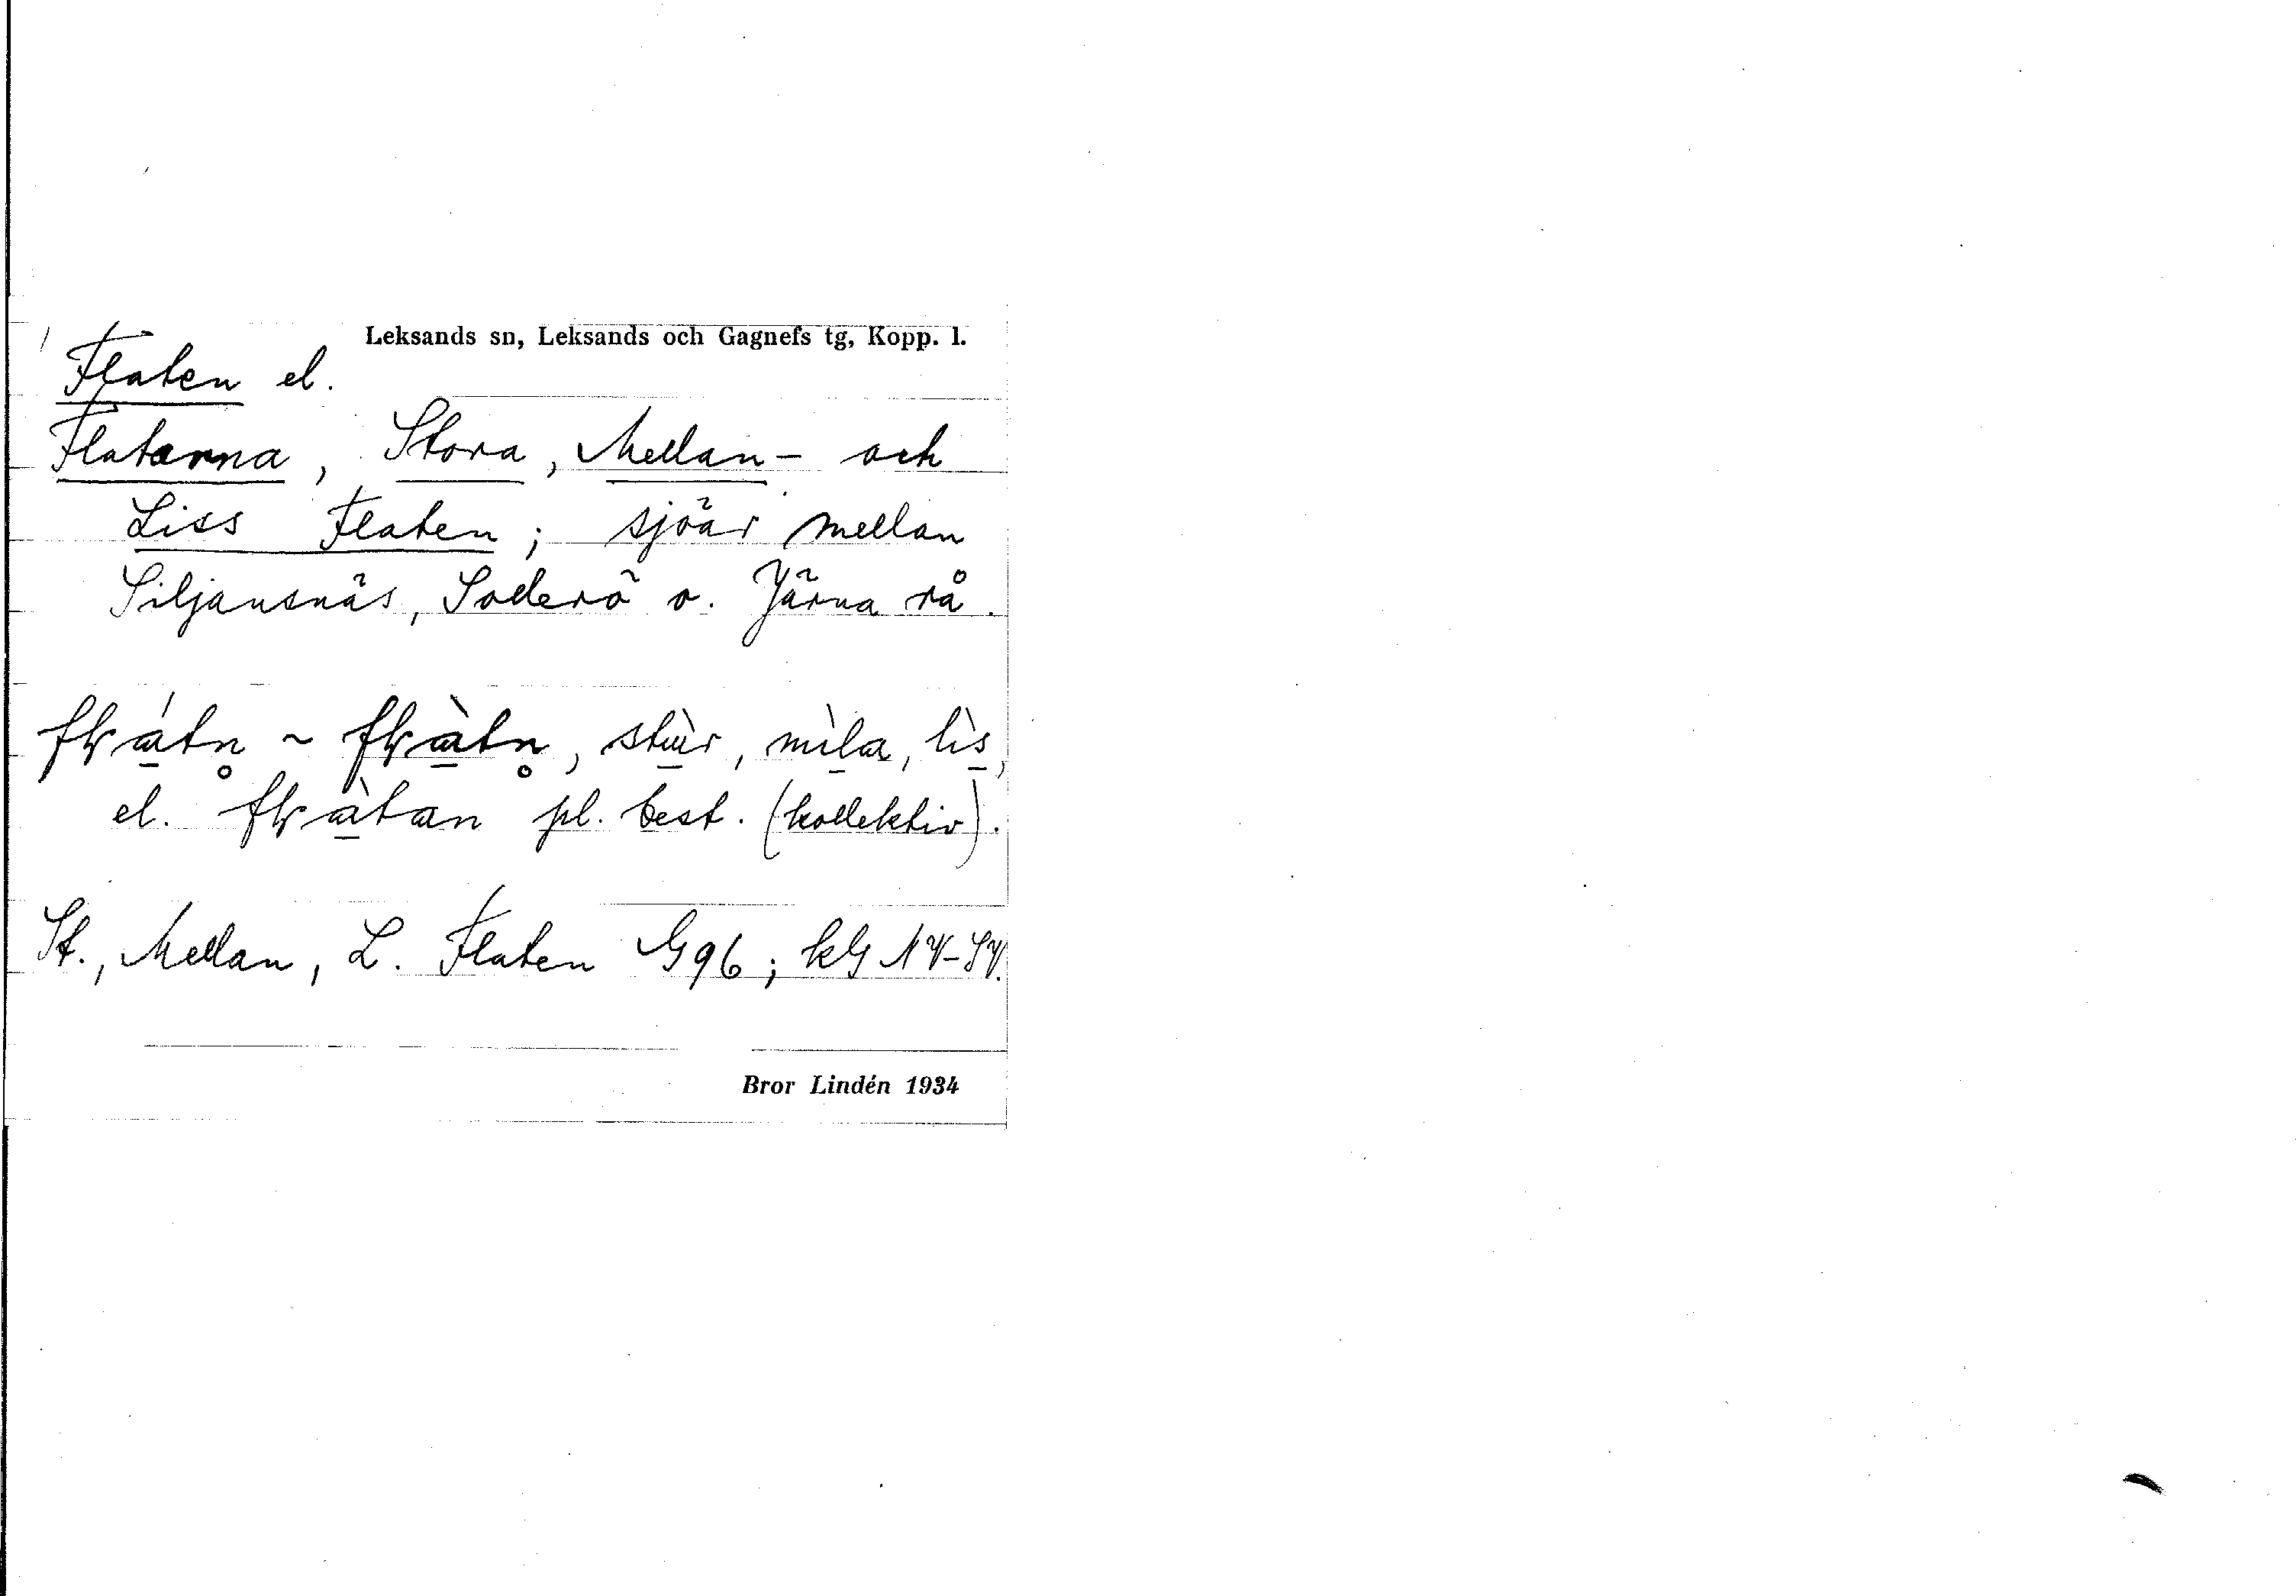 Leksands sn, Leksands och Gagnefs tg, Kopp. l.
Flaten el.
Flatarna, Stora, Mellan- och
Liss Flaten; sjöar mellan
Siljansnäs, Soderö o. Järna rå.
stùr, mìla, lìs,
el. pl. best. (kollektiv).
St., Mellan, L. Flaten G96; kG NV-SV.
Bror Lindén 1934